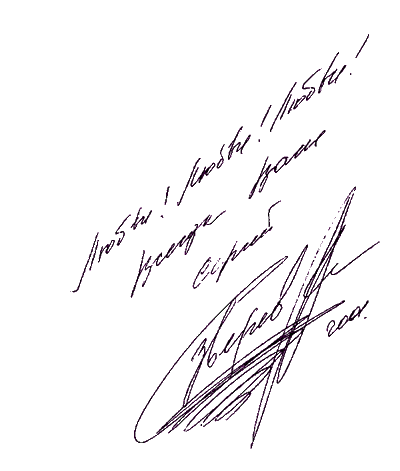 Любви! Любви! Любви!
Всегда Ваш
Сергей
Зверев
200